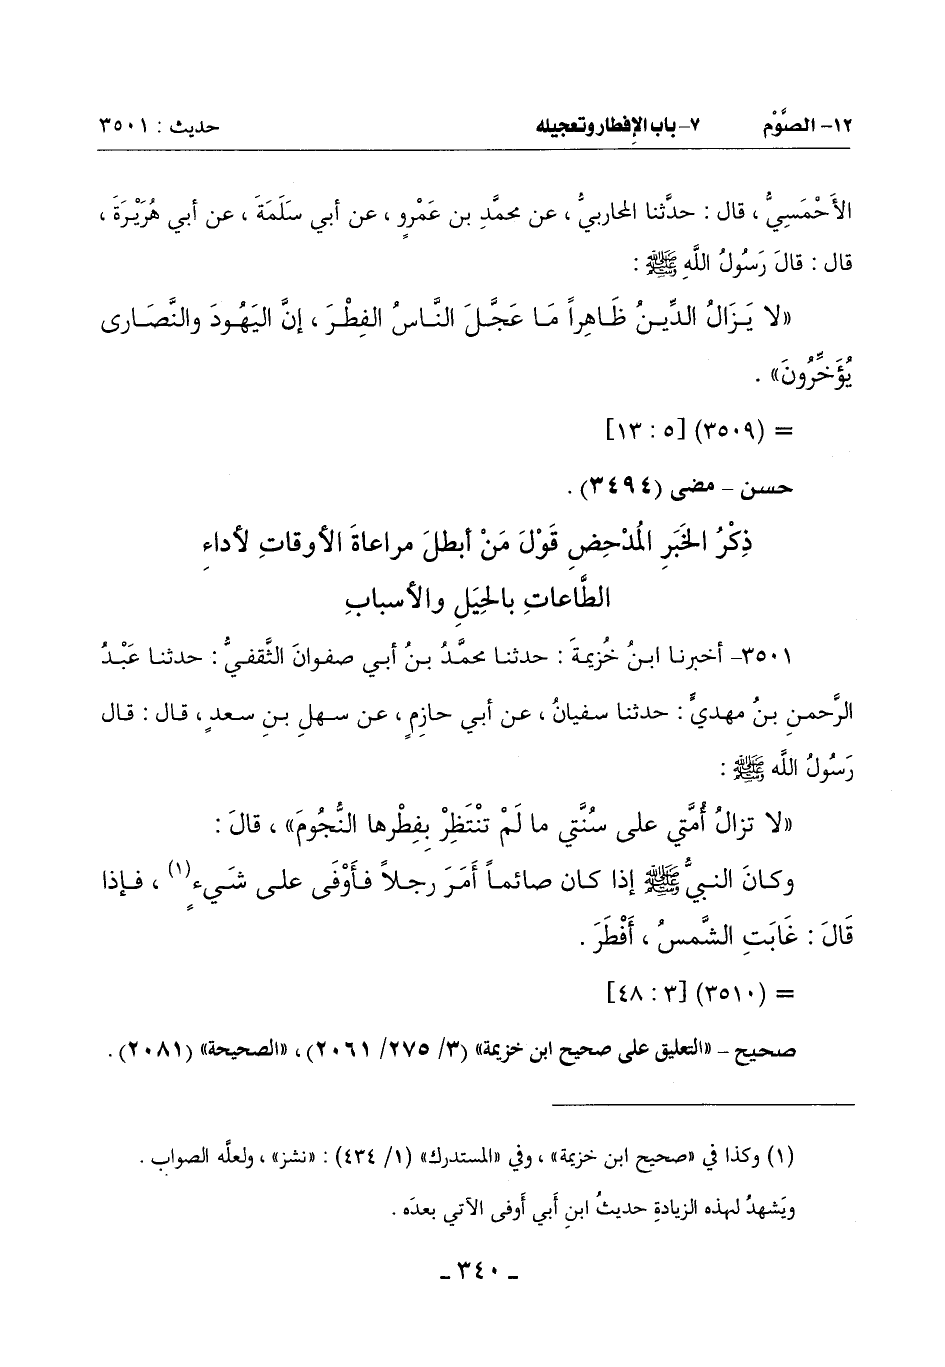 ١٢- الصَّوْم ٧- باب الإفطار وتعجيله حديث : ٣٥٠١
الأَحْمَسِيُّ ، قال : حدَّثنا المحاربيُّ ، عن محمَّدِ بن عَمْرٍو ، عن أبي سَلَمَةَ ، عن أبي هُرَيْرَةَ ،
قال : قالَ رَسُولُ اللَّهِ ﷺ :
«لا يَـزَالُ الدِّيـنُ ظَاهِراً مَـا عَجَّـلَ النَّـاسُ الفِطْـرَ ، إنَّ اليَهُـودَ والنَّصَـارى
يُؤَخِّرُونَ» .
= (٣٥٠٩) [٥ : ١٣]
حسـن - مضى (٣٤٩٤) .
ذِكْرُ الخَبَرِ المُدْحِضِ قَوْلَ مَنْ أبطلَ مراعاةَ الأوقاتِ لأداءِ
الطَّاعاتِ بالحِيَلِ والأسبابِ
٣٥٠١- أخبرنا ابـنُ خُزيمةَ : حدثنـا محمَّـدُ بـنُ أبـي صفـوانَ الثَّقفـيُّ : حدثنـا عَبْـدُ
الرَّحمنِ بنُ مهديٍّ : حدثنا سفيانُ ، عن أبي حازِمٍ ، عن سـهلِ بـنِ سـعدٍ ، قـال : قـال
رَسُولُ اللَّه ﷺ :
«لا تزالُ أُمَّتي على سُنَّتي ما لَمْ تنْتَظِرْ بِفِطْرِها النُّجُومَ» ، قالَ :
وكـانَ النـبيُّ ﷺ إذا كـان صائمـاً أَمَـرَ رجـلاً فـأَوْفَى علـى شَـيءٍ(١) ، فـإذا
قَالَ : غَابَتِ الشَّمسُ ، أَفْطَرَ .
= (٣٥١٠) [٣ : ٤٨]
صحيح - «التعليق على صحيح ابن خزيمة» (٣/ ٢٧٥/ ٢٠٦١) ، «الصحيحة» (٢٠٨١) .
(١) وكذا في «صحيح ابن خزيمة» ، وفي «المستدرك» (١/ ٤٣٤) : «نشز» ، ولعلَّه الصواب .
ويَشهدُ لهذه الزيادةِ حديثُ ابنِ أَبي أَوفى الآتي بعدَه .
- ٣٤٠ -